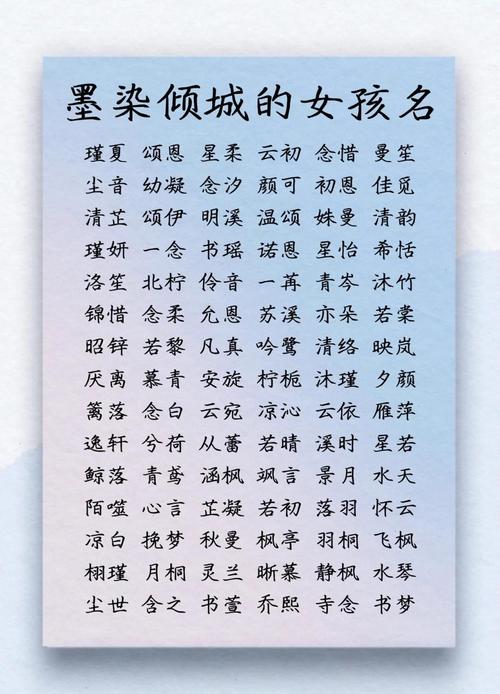 墨染倾城的女孩名
瑾夏 颂恩 星柔 云初 念惜 曼笙
尘音 幼凝 念汐 颜可 初恩 佳觅
清芷 颂伊 明溪 温颂 姝曼 清韵
瑾妍 一念 书瑶 诺恩 星怡 希恬
洛笙 北柠 伶音 一苒 青岑 沐竹
锦惜 念柔 允恩 苏溪 亦朵 若棠
昭锌 若黎 凡真 吟鹭 清络 映岚
厌离 慕青 安旋 柠栀 沐瑾 夕颜
篱落 念白 云宛 凉沁 云依 雁萍
逸轩 兮荷 从蕾 若晴 溪时 星若
鲸落 青鸢 涵枫 飒言 景月 水天
陌噬 心言 芷凝 若初 落羽 怀云
凉白 挽梦 秋曼 枫亭 羽桐 飞枫
栩瑾 月桐 灵兰 晰慕 静枫 水琴
尘世 含之 书萱 乔熙 寺念 书梦